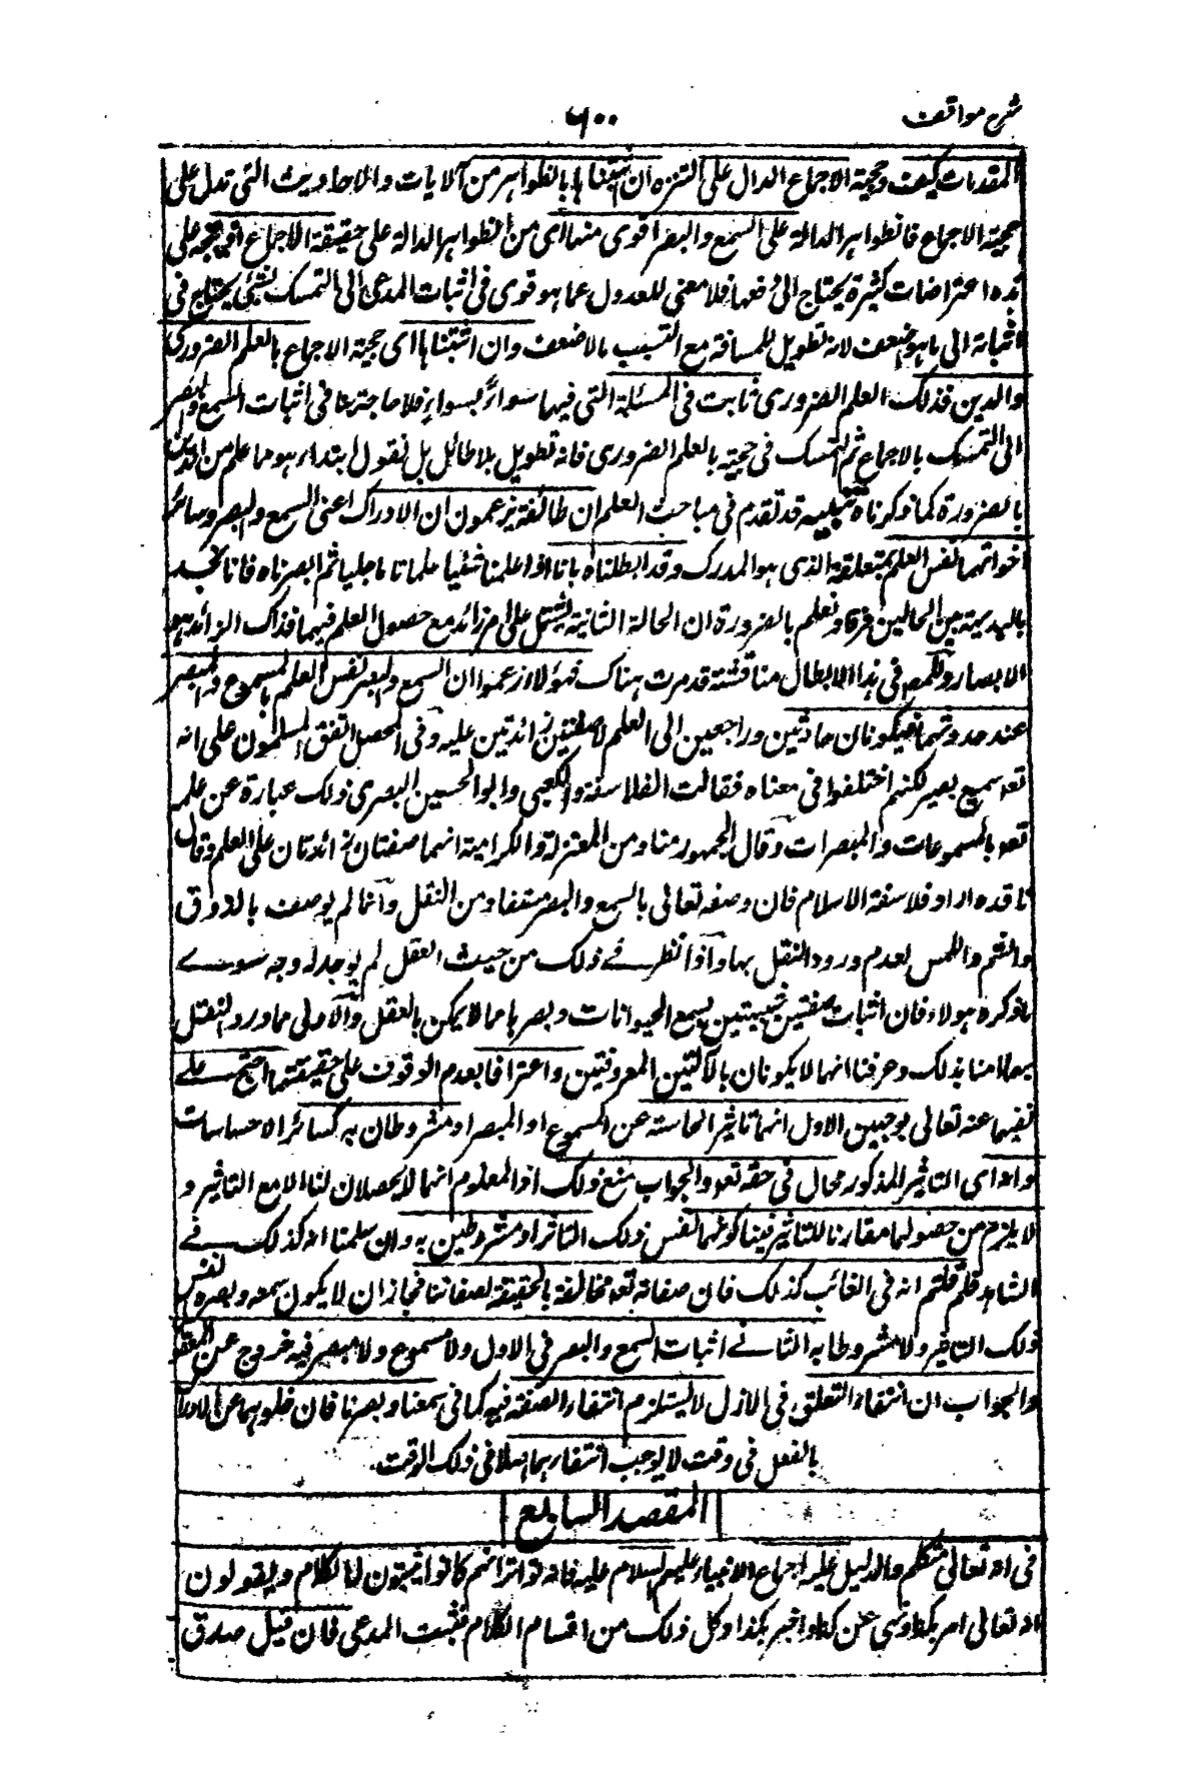 شرح مواقف
٦٠٠
المقدمات كيف وحجية الاجماع الدال على التنزه ان اثبتناها بالظواهر من الآيات والاحاديث التى تدل على
حجية الاجماع فالظواهر الدالة على السمع والبصر اقوى منها اى من الظواهر الدالة على حقيقة الاجماع اذ يتجه على
هذه اعتراضات كثيرة يحتاج الى دفعها فلا معنى للعدول عما هو قوى فى اثبات المدعى الى التمسك بشئ يحتاج فى
اثباته الى ما هو اضعف لانه تطويل للمسافة مع التسبب بالاضعف وان اثبتناها اى حجية الاجماع بالعلم الضرورى
والدين فذلك العلم الضرورى ثابت فى المسئلة التى فيها سواء بسواء فلا حاجة بنا فى اثبات السمع والبصر
الى التمسك بالاجماع ثم التمسك فى حجيته بالعلم الضرورى فانه تطويل بلا طائل بل نقول ابتداء هو مما علم من الدين
بالضرورة كما ذكرناه تنبيه قد تقدم فى مباحث العلم ان طائفة يزعمون ان الادراك اعنى السمع والبصر وسائر
اخواتهما نفس العلم بمتعلقه الذى هو المدرك وقد ابطلناه بانا اذا علمنا شيئا علما تاما جليا ثم ابصرناه فانا نجد
بالبديهة بين الحالين فرقا ونعلم بالضرورة ان الحالة الثانية تشتمل على امر زائد مع حصول العلم فيهما فذاك الزائد هو
الابصار ولهم فى هذا الابطال مناقشة قد مرت هناك فهؤلاء زعموا ان السمع والبصر نفس العلم بالمسموع والمبصر
عند حدوثهما فيكونان حادثين وراجعين الى العلم لا صفتين زائدتين عليه وفى المحصل اتفق المسلمون على انه
تعه سميع بصير لكنهم اختلفوا فى معناه فقالت الفلاسفة والكعبى وابو الحسين البصرى ذلك عبارة عن علمه
تعه بالمسموعات والمبصرات وقال الجمهور منا ومن المعتزلة والكرامية انهما صفتان زائدتان على العلم وقال
ناقده اراد فلاسفة الاسلام فان وصفه تعالى بالسمع والبصر مستفاد من النقل وانما لم يوصف بالذوق
والشم واللمس لعدم ورود النقل بها واذا نظر فے ذلك من حيث العقل لم يوجد له وجه سوے
ما ذكره هولاء فان اثبات صفتين شبيهتين بسمع الحيوانات وبصرها مما لا يمكن بالعقل والاولى مما ورد النقل
بهما آمنا بذلك وعرفنا انهما لا يكونان بالآلتين المعروفتين واعترافا بعدم الوقوف على حقيقتهما احتج علے
نفيهما عنه تعالى بوجهين الاول انهما تاثير الحاسة عن المسموع او المبصر او مشروطان به كسائر الاحساسات
وانه اى التاثير المذكور محال فى حقه تعه والجواب منع ذلك اذ المعلوم انهما لا يحصلان لنا الا مع التاثير و
لا يلزم من حصولهما مقارنا للتاثير فينا كونهما نفس ذلك التاثر او مشروطين به وان سلمنا انه كذلك فے
الشاهد فلم قلتم انه فى الغائب كذلك فان صفاته تعه مخالفة بالحقيقة لصفاتنا فجاز ان لا يكون سمعه وبصره نفس
ذلك التاثير ولا مشروطا به الثانے اثبات السمع والبصر فى الازل ولا مسموع ولا مبصر فيه خروج عن المعقول
والجواب ان انتفاء التعلق فى الازل لا يستلزم انتفاء الصفة فيه كما فى سمعنا وبصرنا فان خلوهما عن الادراك
بالفعل فى وقت لا يوجب انتفاءهما اصلا فى ذلك الوقت
المقصد السابع
فى انه تعالى متكلم والدليل عليه اجماع الانبياء عليهم السلام عليه فانه تواتر انهم كانوا يثبتون له الكلام ويقولون
انه تعالى امر بكذا ونهى عن كذا واخبر بكذا وكل ذلك من اقسام الكلام فثبت المدعى فان قيل صدق